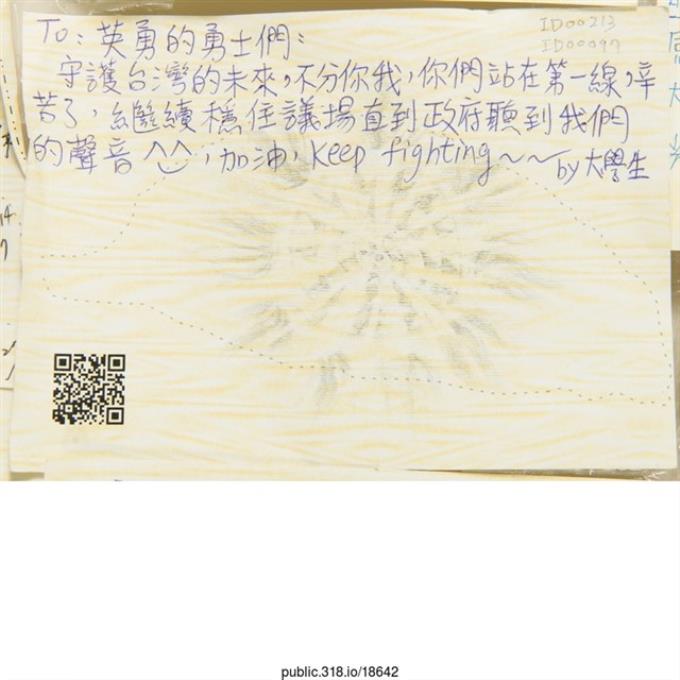 ID00213
ID00097
To：英勇的勇士們：
守護台灣的未來，不分你我，你們站在第一線，辛
苦了，繼續穩住議場直到政府聽到我們
的聲音^‿^，加油，keep fighting～～
by 大學生
public.318.io/18642